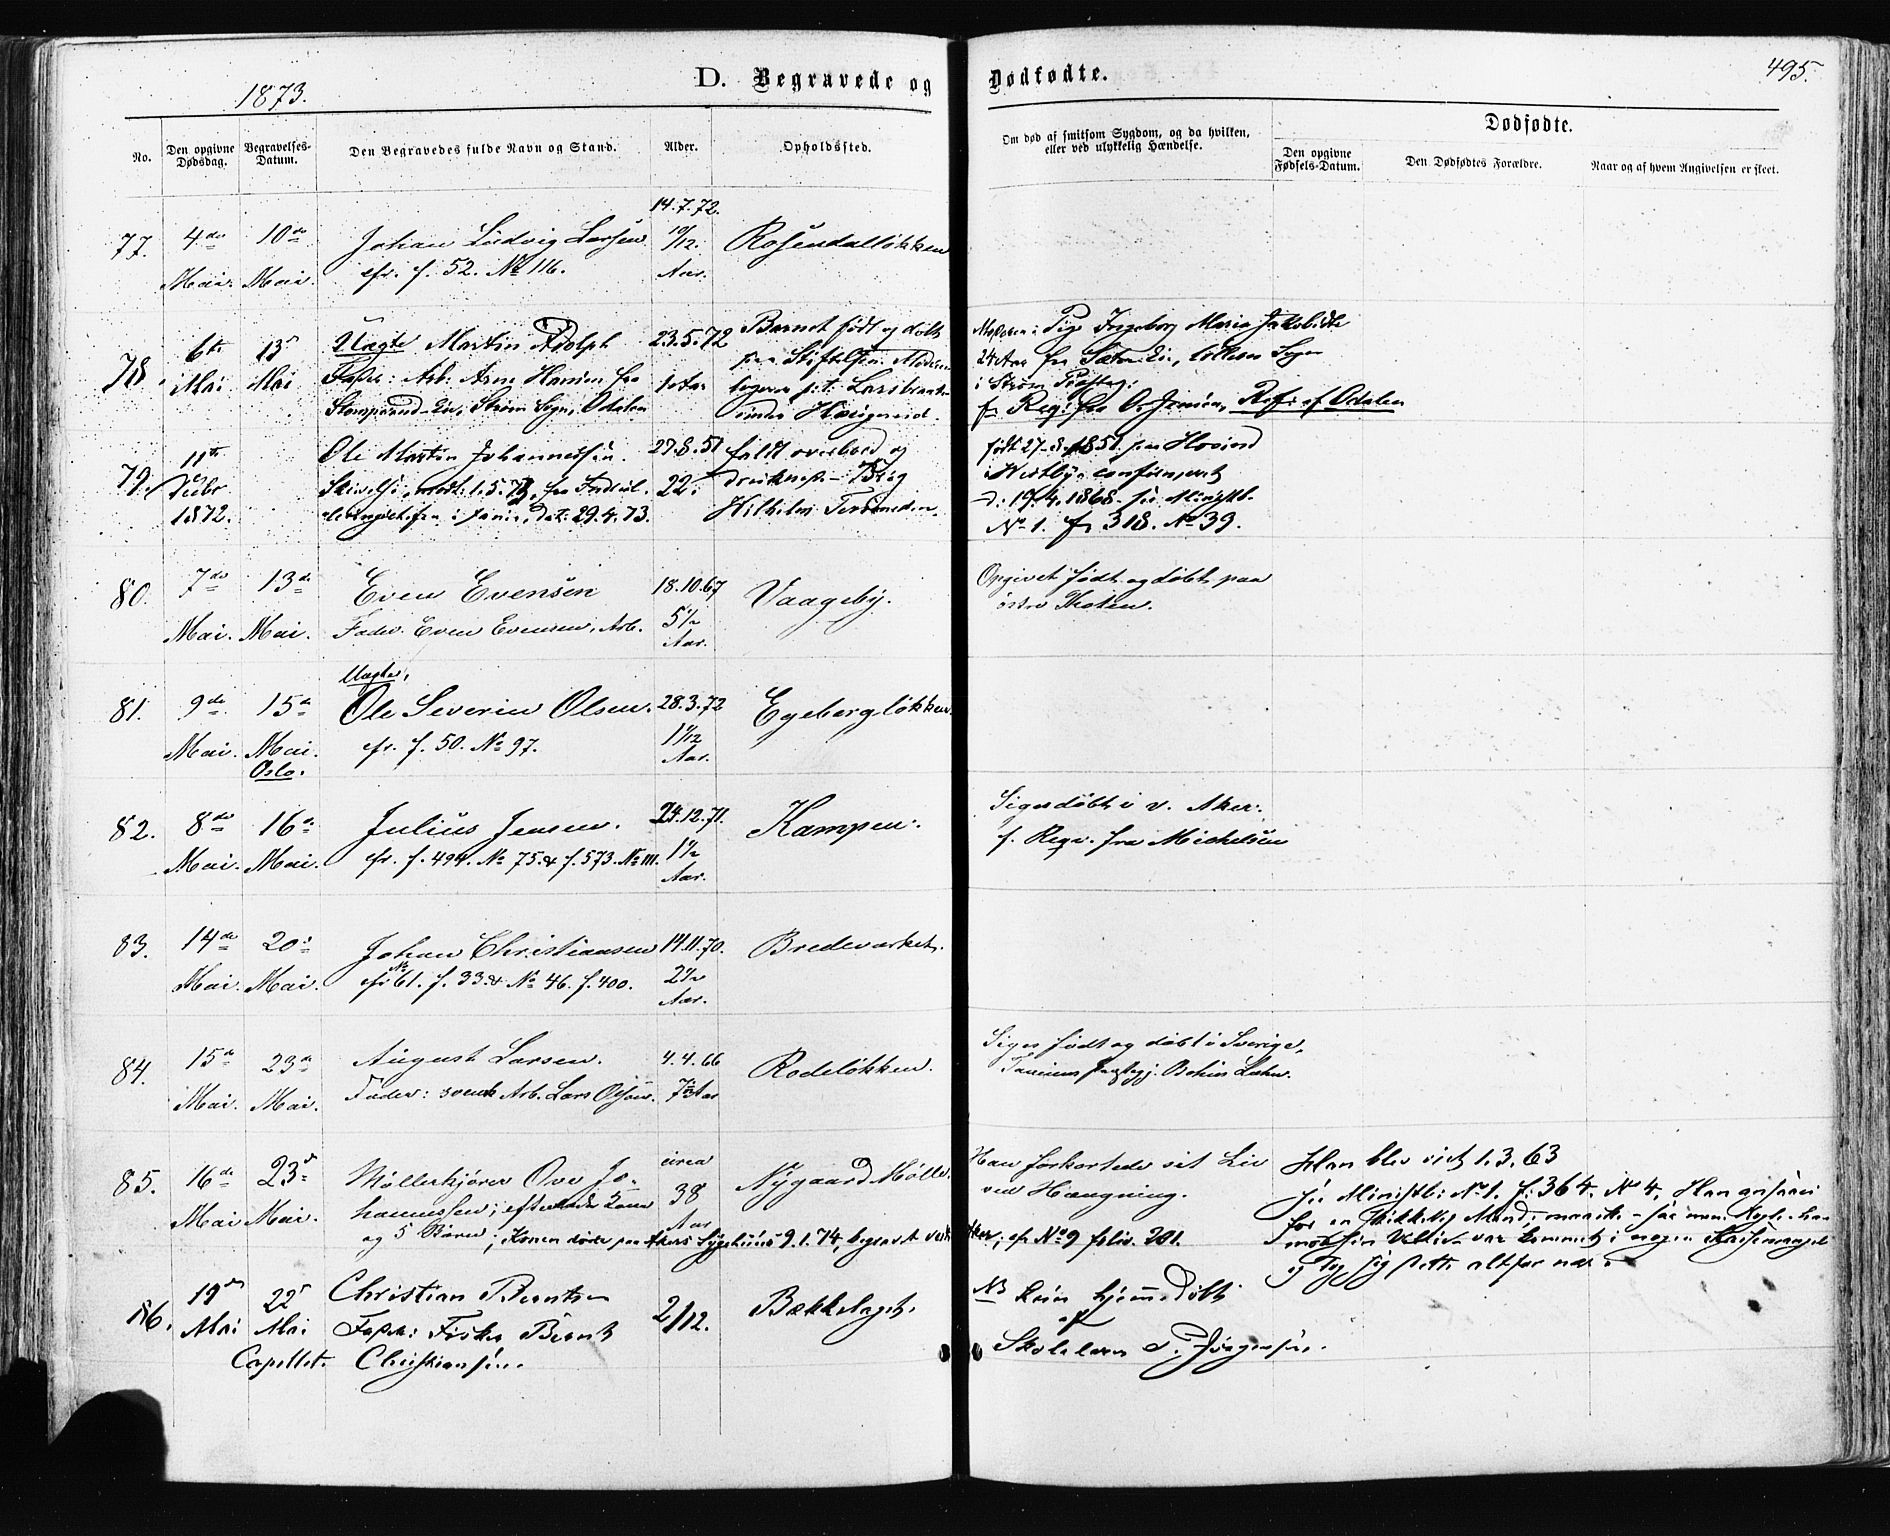 1873.
D. Begravede og Dødfødte.
495.
No.
Den opgivne Dødsdag.
Begravelses-Datum.
Den Begravedes fulde Navn og Stand.
Alder.
Opholdssted.
Om død af smitsom Sygdom, og da hvilken,
eller ved ulykkelig Hændelse.
Dødfødte.
Den opgivne Fødsels-Datum.
Den Dødfødtes Forældre.
Naar og af hvem Angivelsen er skeet.
14.7.72.
77. 4de 10de Johan Ludvig Larsen 10/12 Rosendalløkken
Mai. Mai. cfr. f. 52. No 116. Aar.
78. 6te 13de Uægte Martin Adolph 23.5.72 Barnet født og døbt
Mai Mai Fader: Arb. Arne Hansen fra 1 Aar paa Stiftelsen. Moderen
Strøm Sogn, Odalen
Moderen: Pige Ingeborg Maria Jakobsdtr
24 Aar fra Sogn
i Strøm Præstegj.
Odalen
79. 11te Ole Martin Johannessen. 27.8.51 faldt overbord og
Febr. 22. druknede - Brig
1872. i Janr., dat. 29.4.73. Wilhelm
født 27-8-1851 paa Hovind
i Vestby, confirmeret
d: 19.4.1868. se Ministb.
No 1. f. 318. No 39.
80. 7de 13de Even Evensen 18.10.67 Vaageby.
Mai. Mai. Fader Even Evensen, Arb. 5 1/2
Aar.
Opgivet født og døbt paa
østre Thoten.
Uægte,
81. 9de 15de Ole Severin Olsen. 28.3.72 Egebergløkken.
Mai. Mai. cfr. f. 50. No 97. 1 1/12
Oslo. Aar.
82. 8de 16de Julius Jensen. 24.12.71. Kampen.
Mai. Mai. cfr. f. 494. No 75. & f. 573. No 111. 1 1/2
Aar.
Siges døbt i v. Aker.
f. Regn. fra Michelsen
83. 14de 20de Johan Christiansen 14.11.70. Bredeverket.
Mai. Mai. cfr No 61. f. 33. & No 46. f. 400. 2 1/2
Aar.
84. 15de 23de August Larsen. 4.4.66 Rodeløkken.
Mai. Mai. Fader: svensk Arb. Lars Olsson. 7 Aar
Siges født og døbt i Sverige,
85. 16de 23de Møllerkjører Ove Jo- circa Nygaard Mølle.
Mai Mai. hannessen; efterlader Kone 38
og 5 Børn; Konen døde paa Akers Sygehuus 9.1.74, begravet Vestre Aker; cfr No 9 folio. 201.
Aar
Han forkortede sit Liv
ved Hængning.
Han blev viet 1.3.63
se Ministb. No 1. f. 364. No 4. Han ansaaes
for en skikkelig Mand;
86. 19de 22de Christian Berntsen 2/12. Bækkelaget.
Mai Mai Fader: Fisker Bernt
Capellet. Christiansen.
NB hjemmedøbt
af
Skolelærer P. Jørgensen.